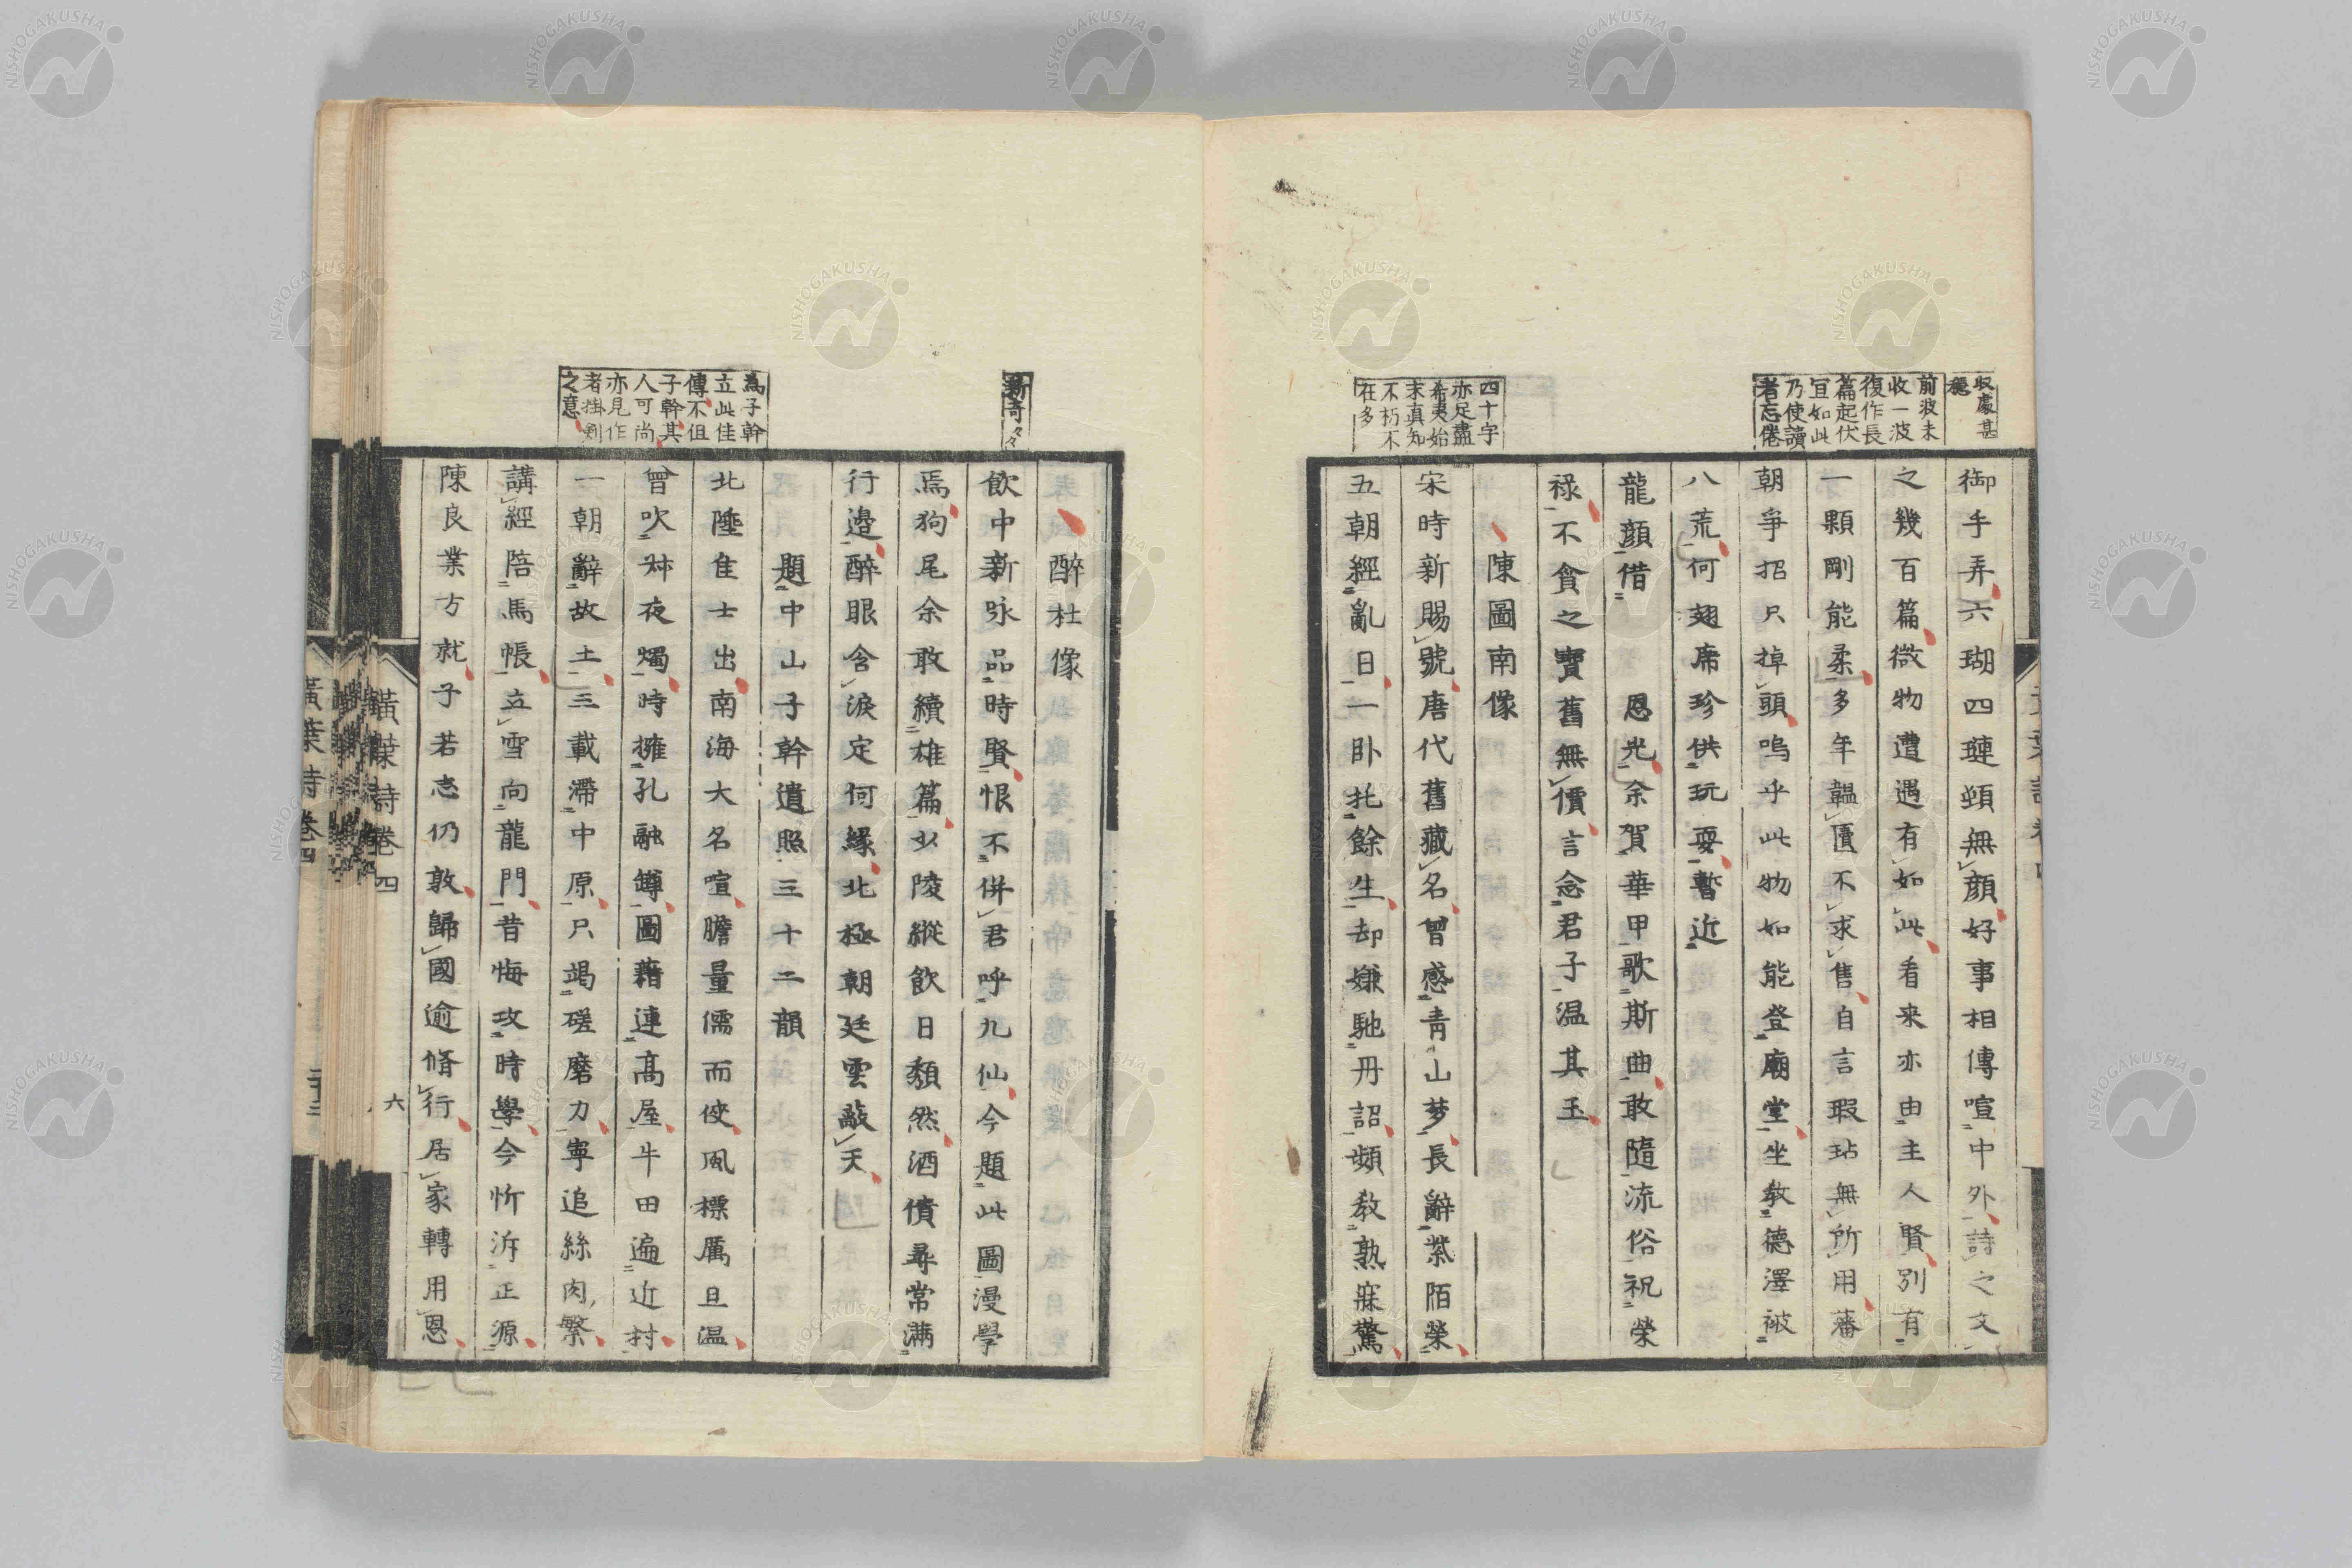 収處甚
穩
前波未
收一波
復作長
篇起伏
宜如此
乃使讀
者忘倦
御手弄六瑚四璉頸無顏好事相傳喧中外詩之文
之幾百篇微物遭遇有如此看来亦由主人賢別有
一顆剛能柔多年韞匱不求售自言瑕玷無所用蕃
朝爭招只掉頭嗚乎此物如能登廟堂坐教德澤被
八荒何翅席珍供玩耍暫近
龍顏借　恩光余賀華甲歌斯曲敢隨流俗祝榮
祿不貪之寶舊無價言念君子温其玉
四十字
亦足盡
希夷始
末真知
不朽不
在多
陳圖南像
宋時新賜號唐代舊藏名曾感青山夢長辭紫陌榮
五朝經亂日一卧托餘生却嫌馳丹詔頻教熟寐驚
新奇々々
醉杜像
飲中新咏品時賢恨不併君呼九仙今題此圖漫學
焉狗尾余敢續雄篇少陵縱飲日頽然酒債尋常滿
行邉醉眼含淚定何緣北極朝廷雲敲天
為子幹
立此佳
傳不但
子幹其
人可尚
亦見作
者掛劍
之意
題中山子幹遺照三十二韻
北陲隹士出南海大名喧膽量儒而俠風標厲且温
曾吹艸夜燭時擁孔融罇圖藉連髙屋牛田遍近村
一朝辭故土三載滯中原只竭磋磨力寧追絲肉繁
講經陪馬帳立雪向龍門昔悔攻時學今忻泝正源
陳良業方就子若志仍敦歸國逾脩行居家轉用恩
黄葉詩卷四
六
黄葉詩卷四
NISHOGAKUSHA